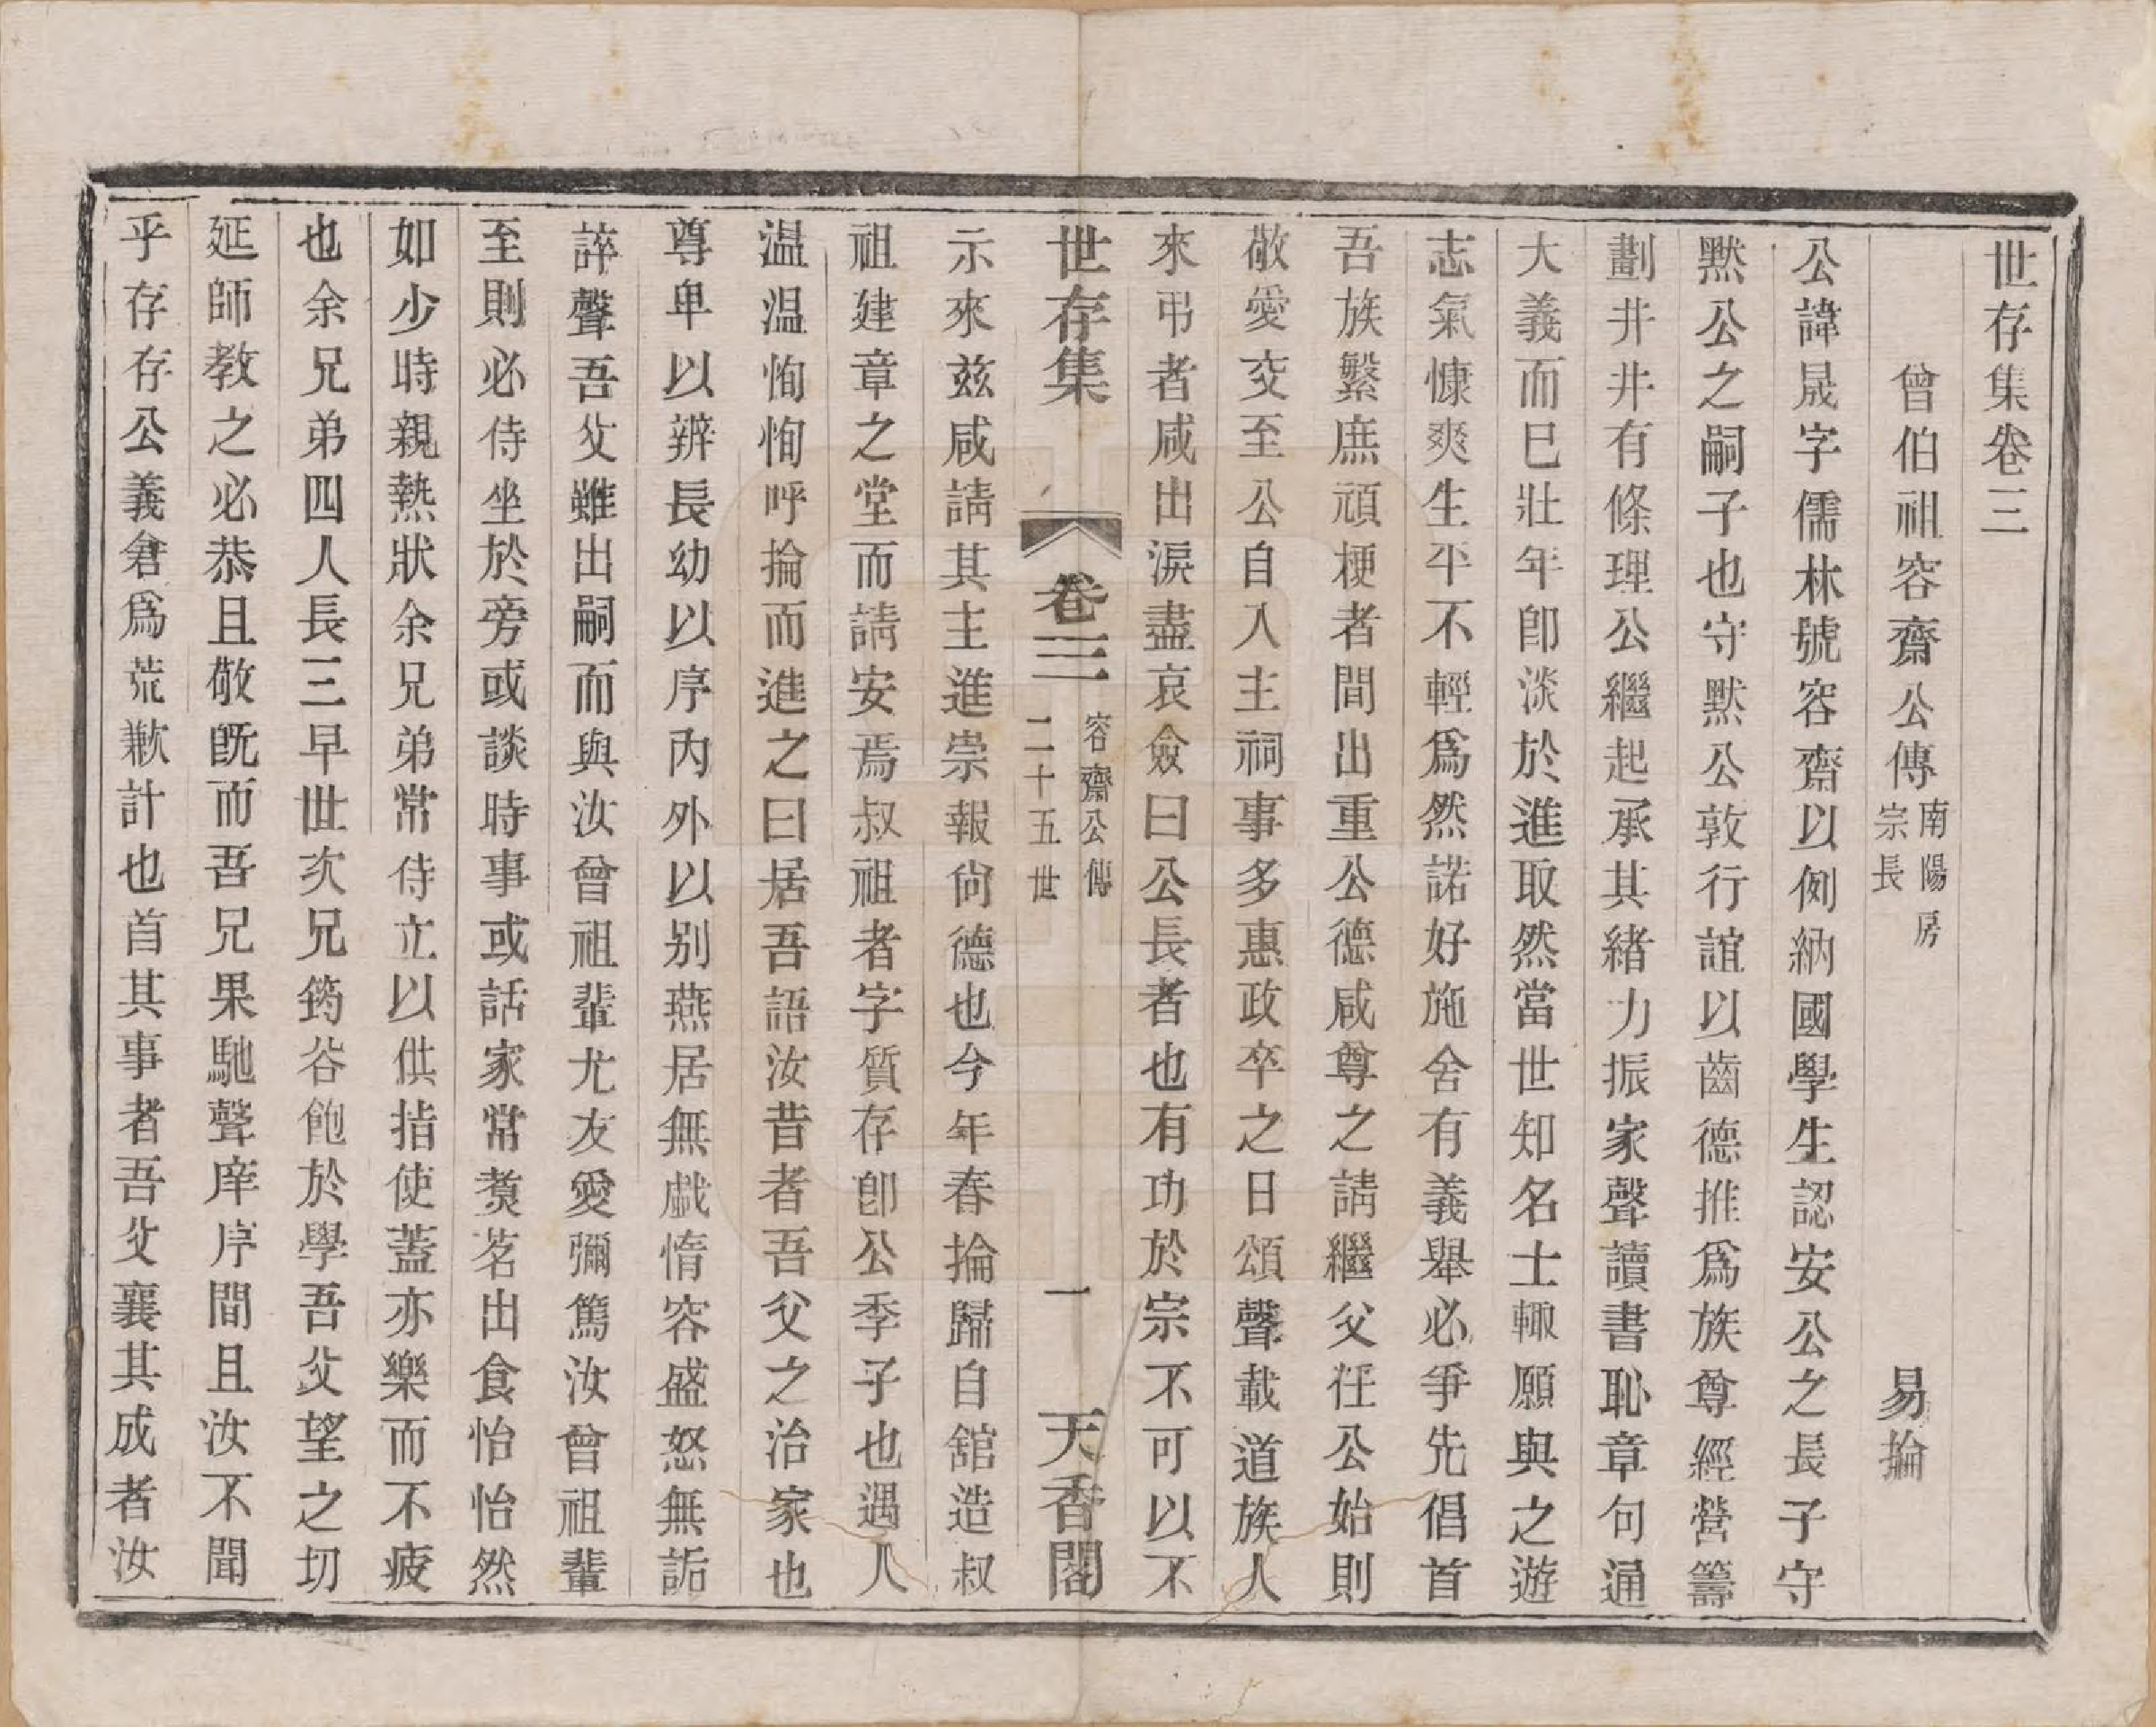 世存集卷三
曾伯祖容齋公傳
南陽房
宗長
易掄
公諱晟字儒林號容齋以例納國學生認安公之長子守
黙公之嗣子也守黙公敦行誼以齒德推爲族尊經營籌
劃井井有條理公繼起承其緒力振家聲讀書恥章句通
大義而已壯年卽淡於進取然當世知名士輙願與之遊
志氣慷爽生平不輕爲然諾好施舍有義舉必爭先倡首
吾族繁庶頑梗者間出重公德咸尊之請繼父任公始則
敬愛交至公自入主祠事多惠政卒之日頌聲載道族人
來弔者咸出淚盡哀僉曰公長者也有功於宗不可以不
世存集
卷三
容齋公傳
二十五世
一
天香閣
示來兹咸請其主進崇報尙德也今年春掄歸自舘造叔
祖建章之堂而請安焉叔祖者字質存卽公季子也遇人
温温恂恂呼掄而進之曰居吾語汝昔者吾父之治家也
尊卑以辨長幼以序内外以别燕居無戯惰容盛怒無詬
誶聲吾父雖出嗣而與汝曾祖輩尤友愛彌篤汝曾祖輩
至則必侍坐於旁或談時事或話家常煑茗出食怡怡然
如少時親熱狀余兄弟常侍立以供指使蓋亦樂而不疲
也余兄弟四人長三早世次兄筠谷飽於學吾父望之切
延師教之必恭且敬旣而吾兄果馳聲庠序間且汝不聞
乎存存公義倉爲荒歉計也首其事者吾父襄其成者汝